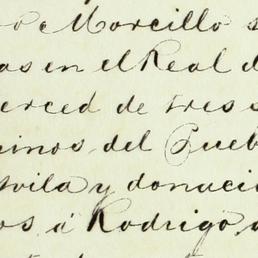 o Morcillo s
as en el Real d
erced de tres s
cinos del Pueb
Avila y donaci
os á Rodrigo, a